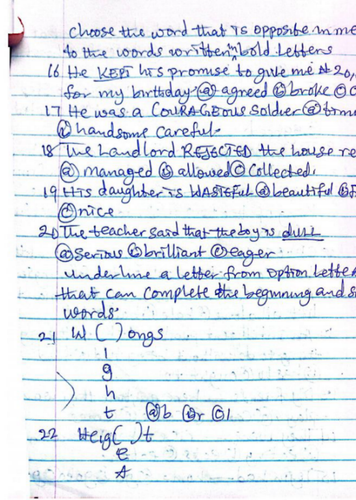 Choose the word that is opposite in me
to the words written in bold letters
16 He KEPT his promise to give me # 20,
for my birthday (a) agreed (b) broke (c) c
17 He was a COURAGEOUS soldier (a) tim
(b) handsome careful.
18 The Landlord REJECTED the house re
(a) managed (b) allowed (c) collected.
19 His daughter is WASTEFUL (a) beautiful (b)
(c) nice
20 The teacher said that the boy is dull
(a) serious (b) brilliant (c) eager
underline a letter from option lette
that can complete the beginning and s
words.
21 W ( ) ongs
i
g
h
t (a) b (b) r (c) l
22 Heig( )t
e
A